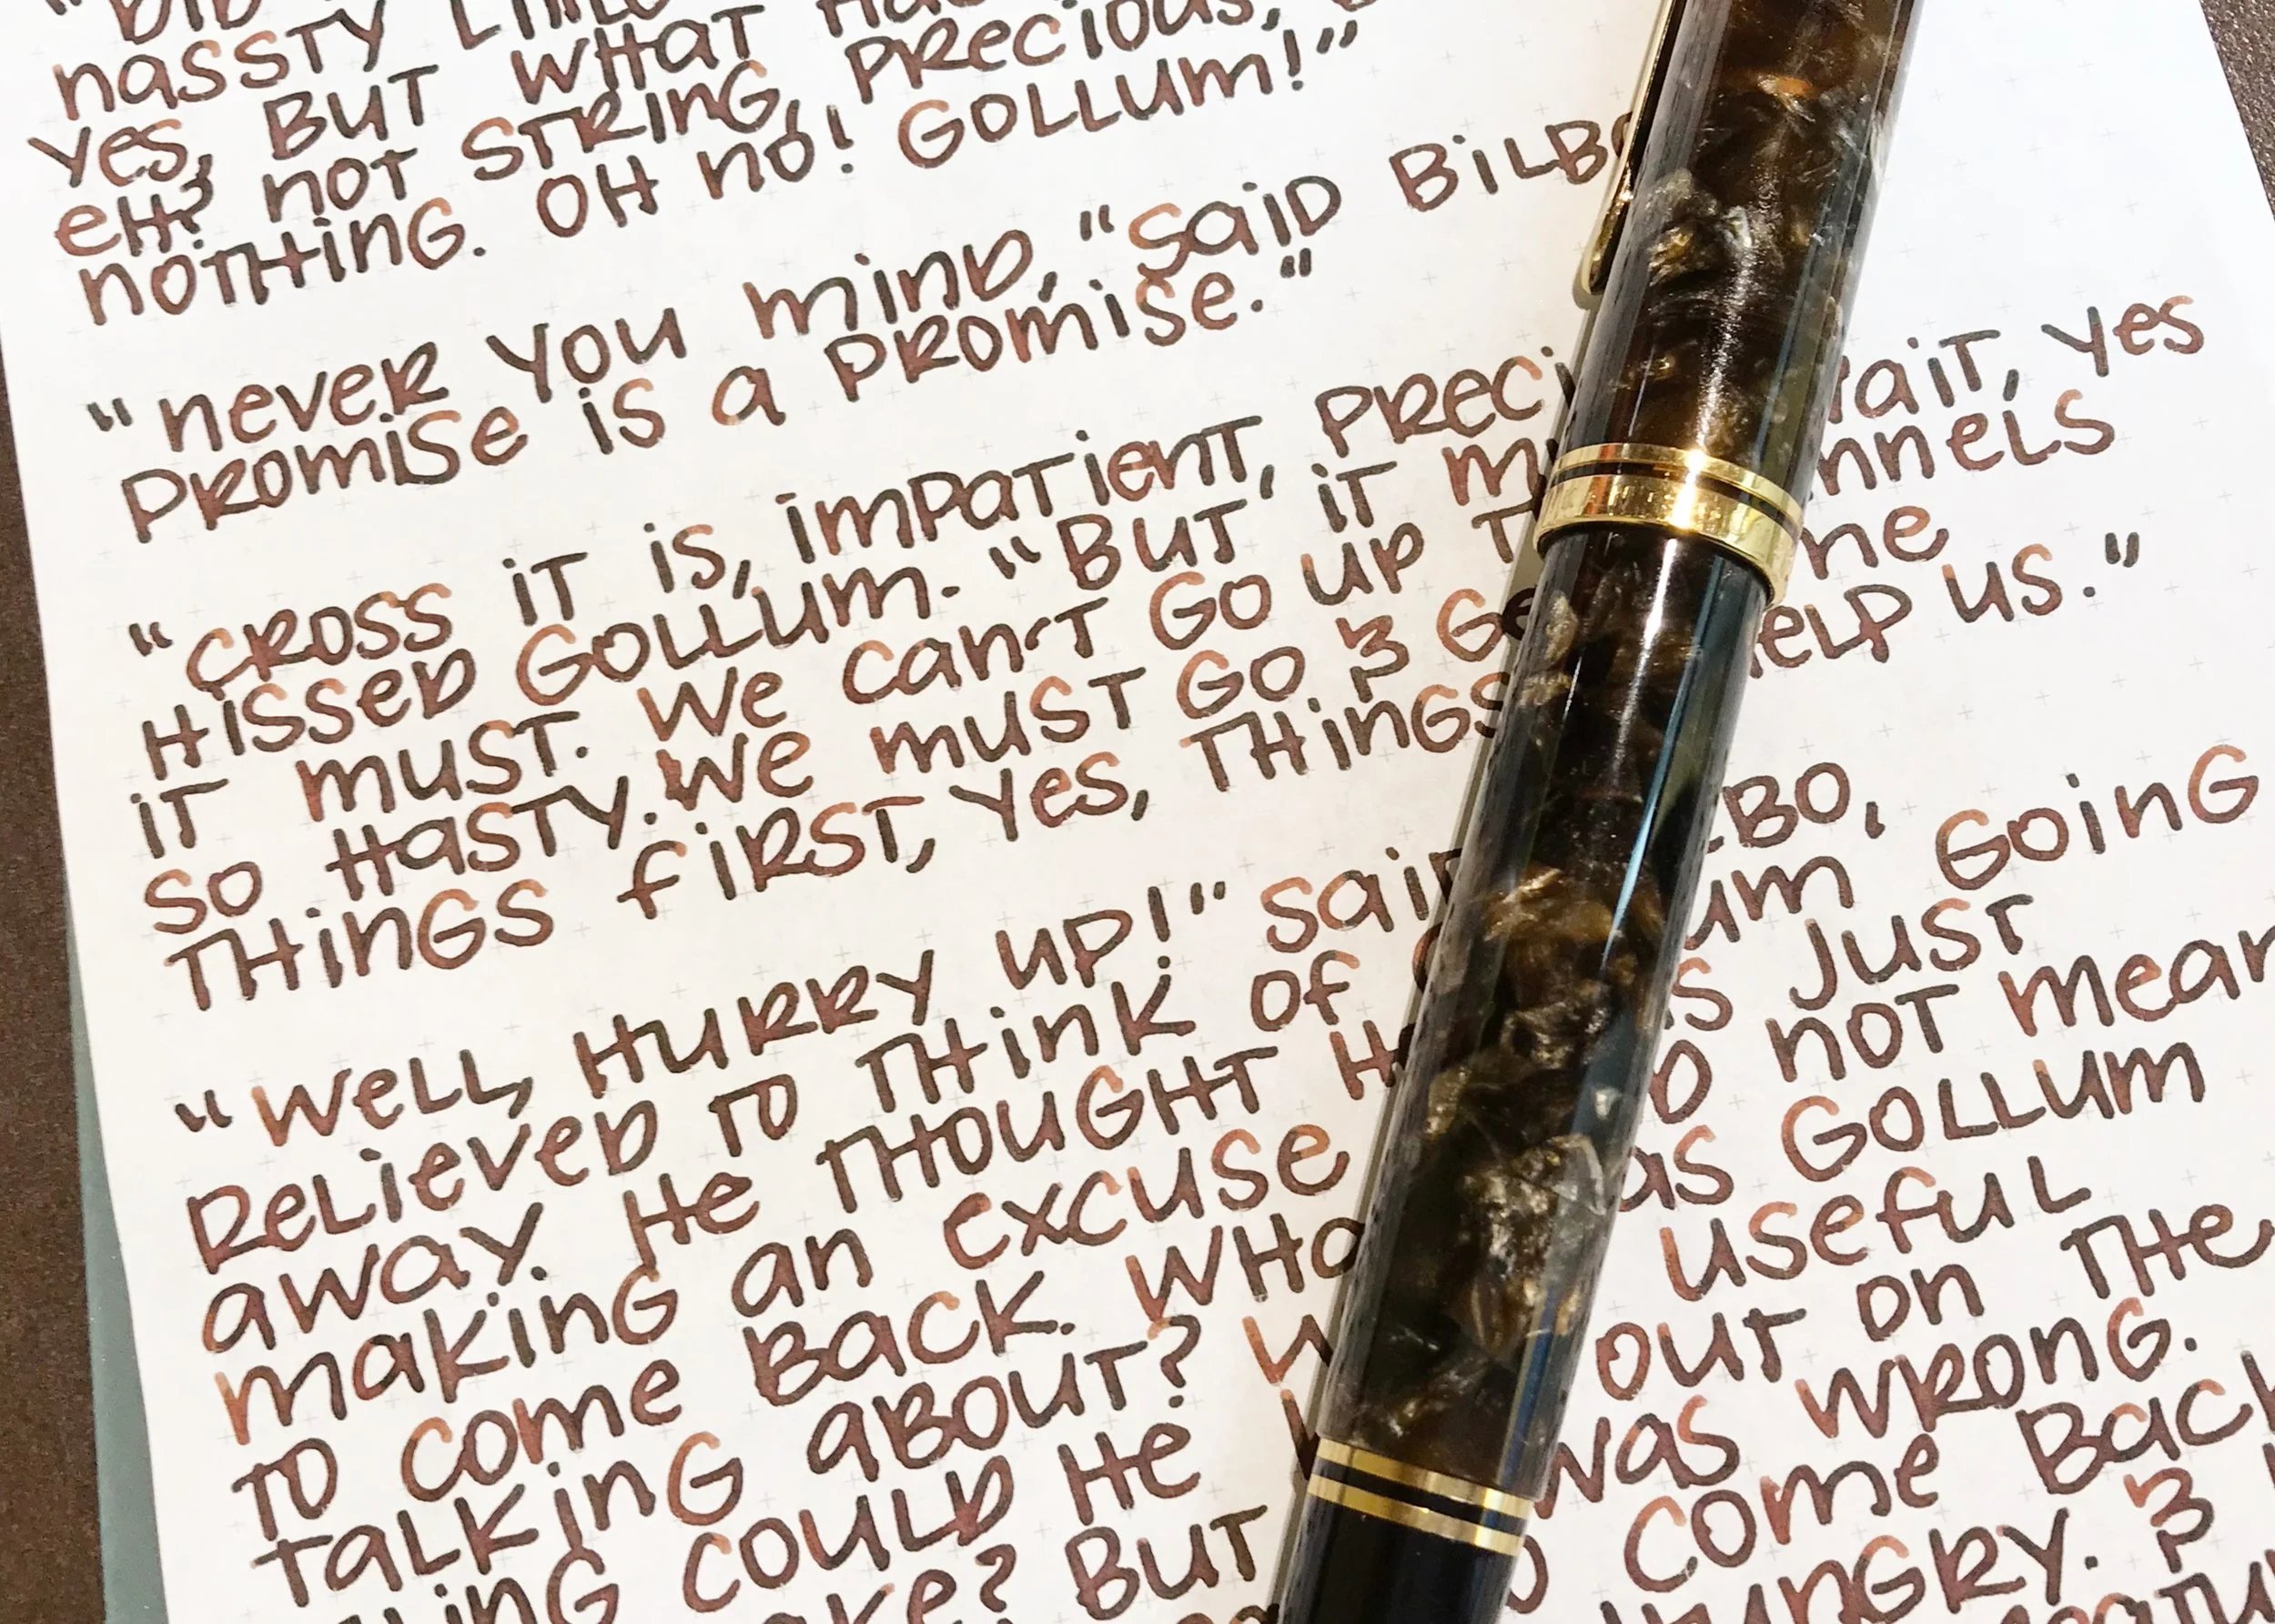 nassTy
yes, BUT WHAT
eH? noT STRinG, PRECious,
noTHinG. OH no! GoLLum!"
"never you minD, "saiD BiLBo
PRomise is a PRomise."
"CRoss iT is, imPaTienT, PREC waiT, yes
HisseD GoLLum. "BuT iT m nneLs
iT musT. We can'T Go uP T ne
so HasTy. We musT Go & Ge HeLP us."
THinGs fiRsT, yes, THinGs
"WeLL, HuRRy uP!" saiD BO,
ReLieveD To THinK of um GoinG
away. He THouGHT He s JusT
maKinG an excuse D noT mean
To come BacK. WHa as GoLLum
TaLKinG aBouT? W usefuL
couLD He ouT on THe
BuT was wRonG.
come BacK
&